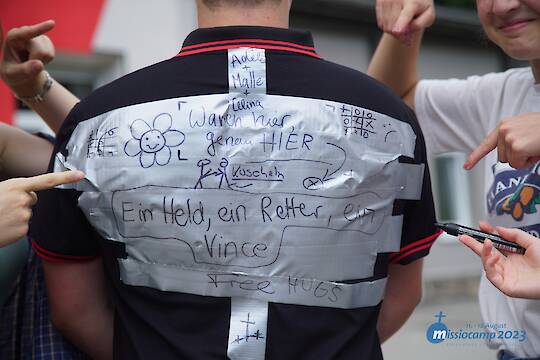 + Malle
+ Celina
Waren hier
genau HIER
kuscheln
Ein Held, ein Retter, ein
Vince
Free HUGS
11. - 18. August
missiocamp 2023